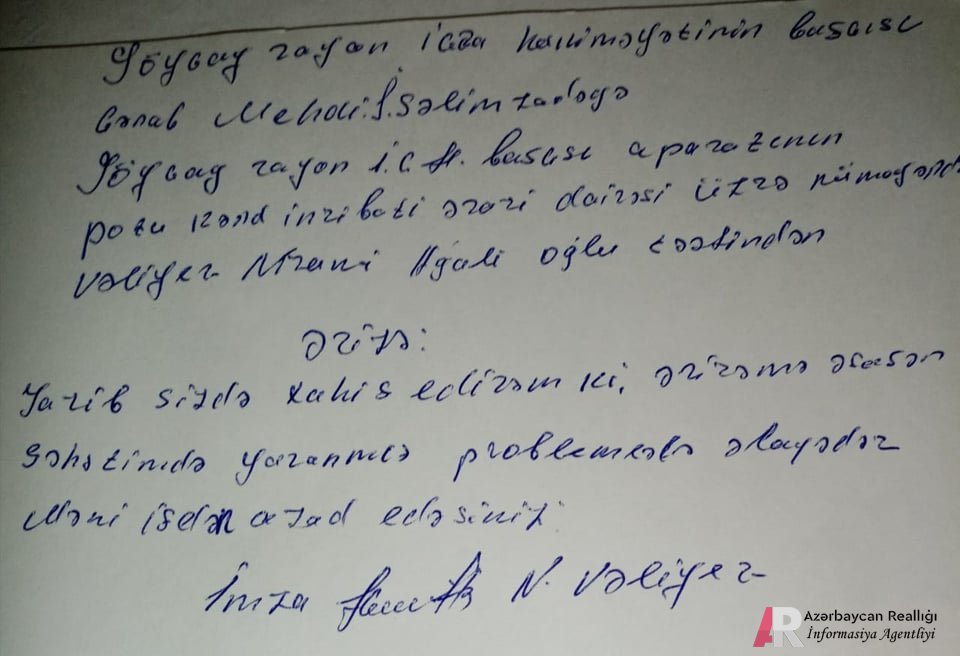 Göyçay rayon icra hakiməyətinin başçısı
cənab Mehdi.Ş.Səlimzadəyə
Göyçay rayon İ.C.H. başçısı aparatının
potu kənd inzibati ərazi dairəsi üzrə nümayəndə
Vəliyev Nizami Ağali oğlu tərəfindən
Ərizə:
Yazib sizdə xahiş edirəm ki, ərizəmə əsasən
səhətimdə yaranmış problemlələ əlaqədar
Məni işdən azad edəsiniz.
İmza N. Vəliyev
AR Azərbaycan Reallığı
İnformasiya Agentliyi